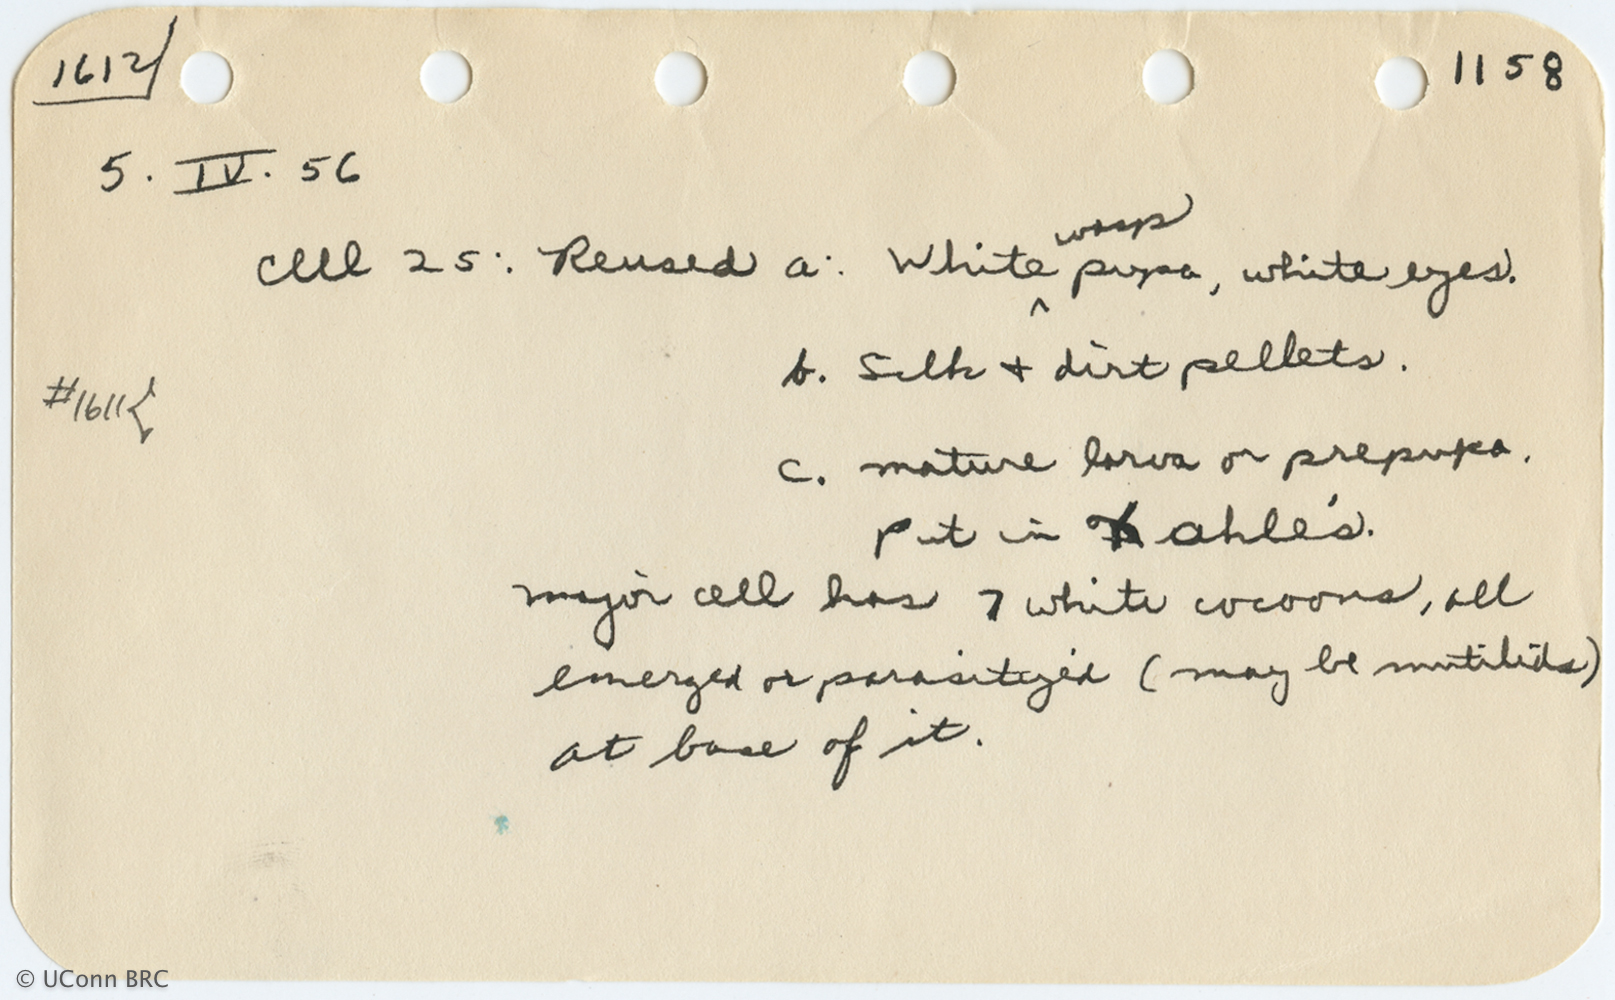 1612
1158
5. IV. 56
Cell 25: Reused a: White wasp pupa, white eyes.
b. Silk + dirt pellets.
#1611{
c. mature larva or prepupa.
Put in Kahle's.
major cell has 7 white cocoons, all
emerged or parasitized (may be mutilids)
at base of it.
© UConn BRC